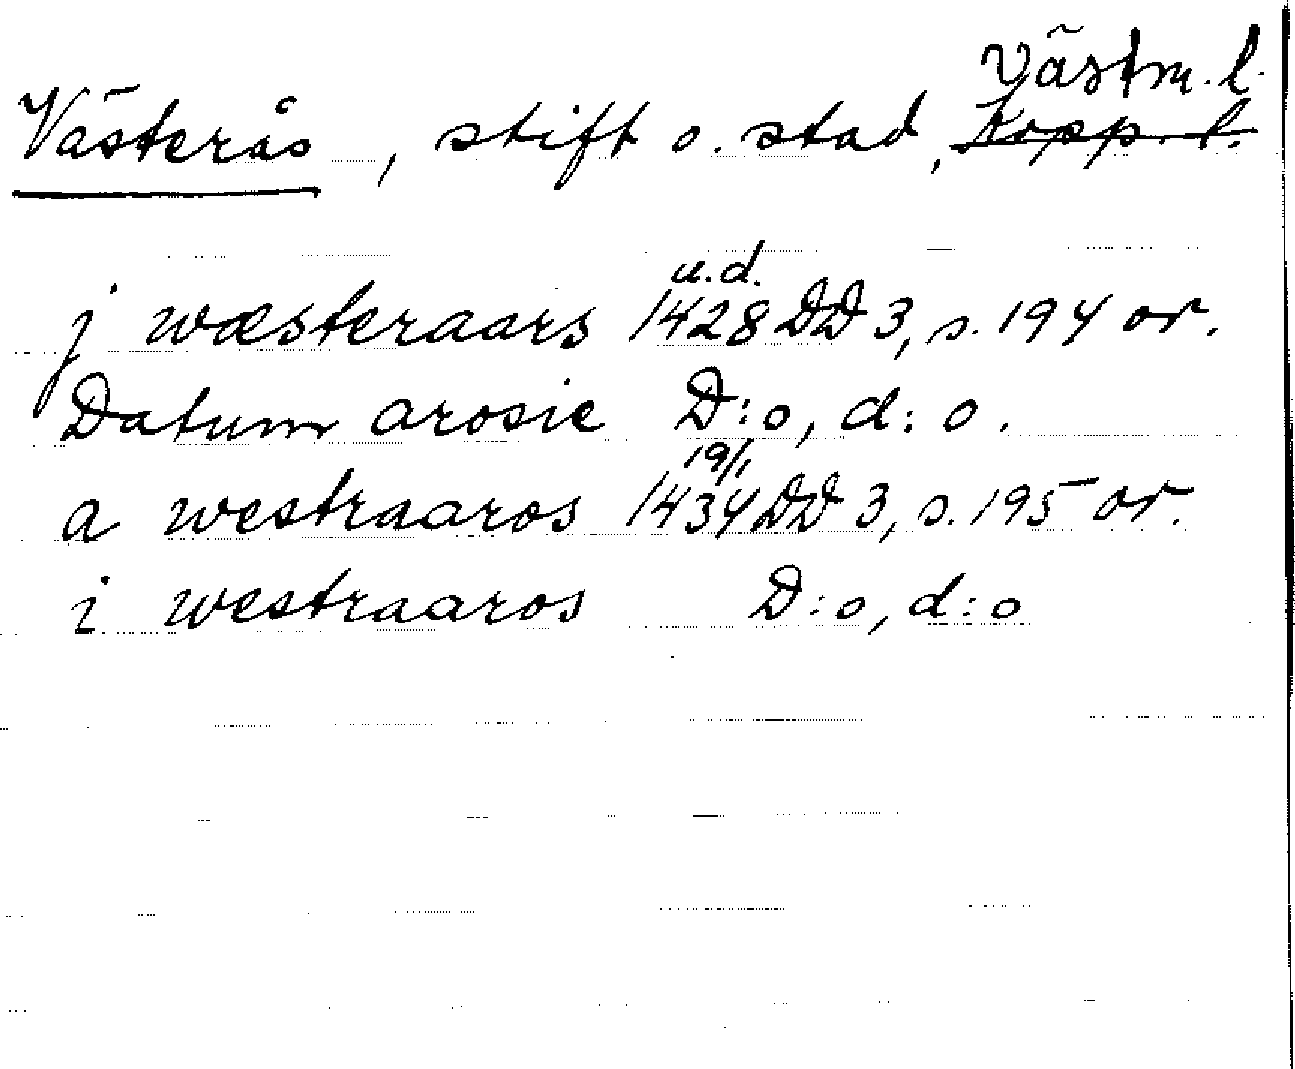 Västm. l.
Västerås, stift o. stad, Kopp. l.
u.d.
j wæsteraars 1428 DD 3, s. 194 or.
Datum arosie D:o, d:o.
19/1
a westraaros 1434 DD 3, s. 195 or.
i westraaros D:o, d:o